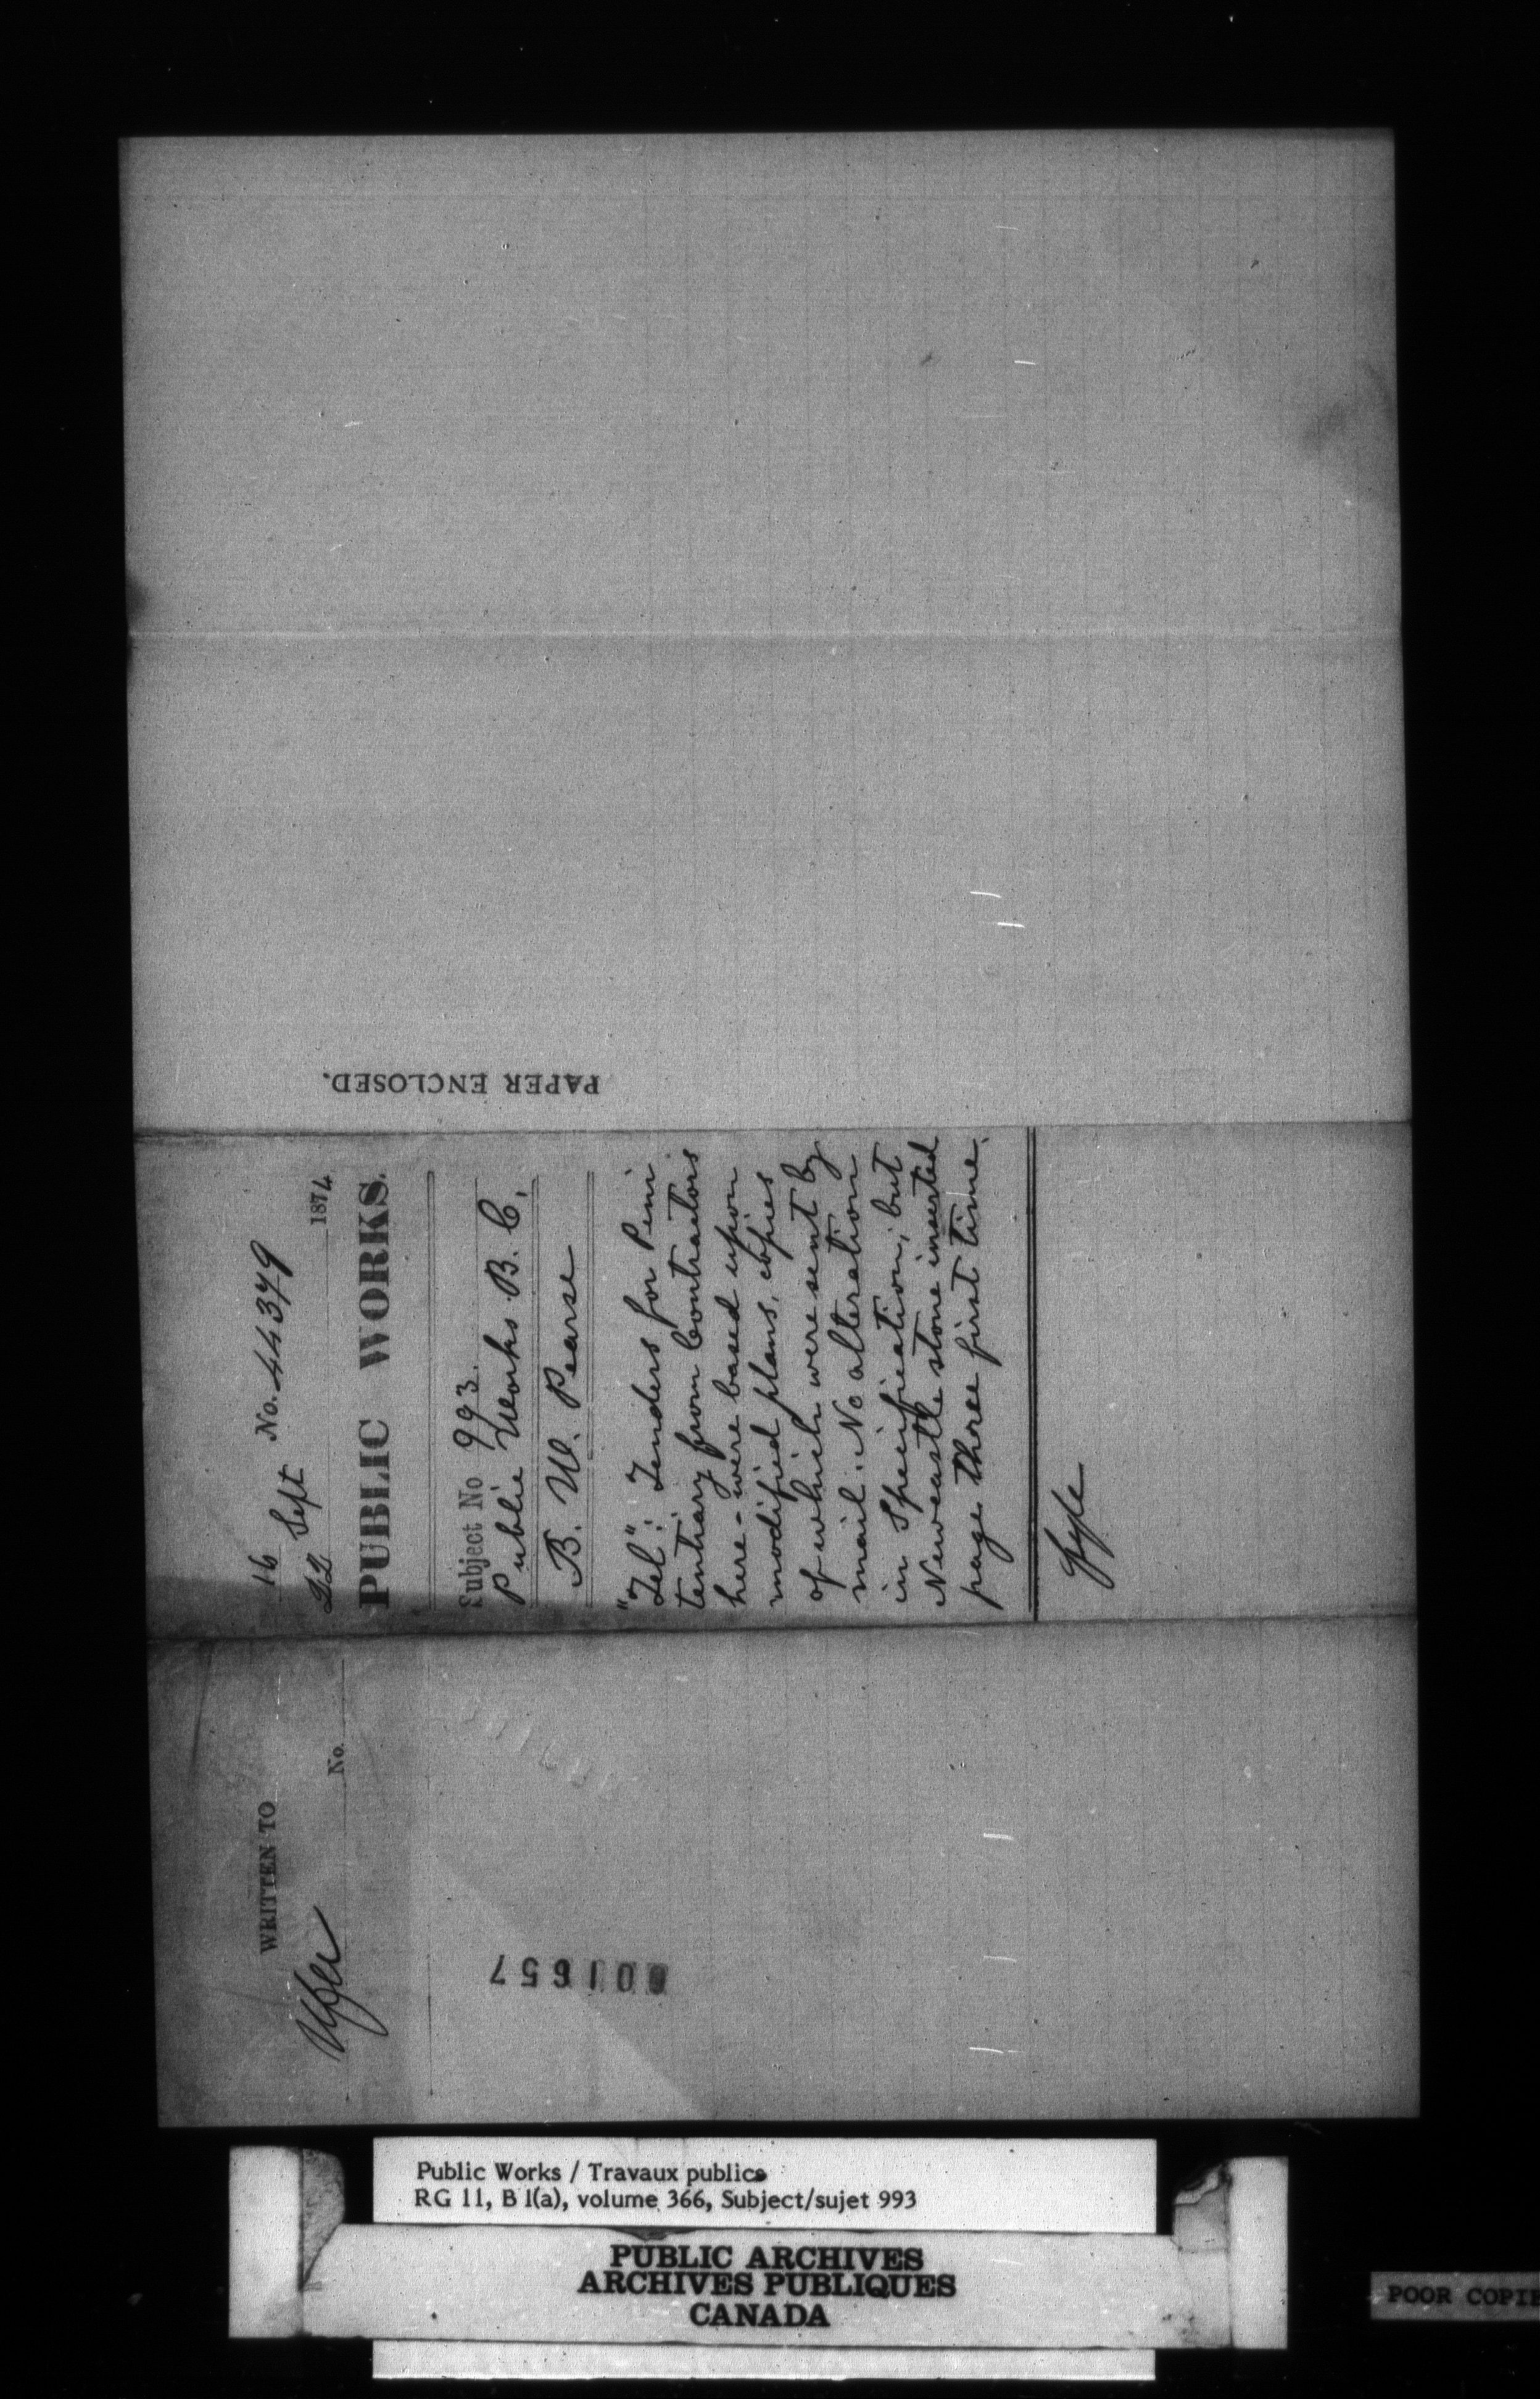 16 No. 44379
22 Sept 1874
PUBLIC WORKS.
Subject No 993.
Public Works B. C.
B. W. Pearse
"Tel": Tenders for Peni
tentiary from Contractors
here - were based upon
modified plans, copies
of which were sent by
mail. No alteration
in Specification, but
Newcastle stone inserted
page three first time.
Fyle
PAPER ENCLOSED.
WRITTEN TO
No.
001657
Public Works / Travaux publics
RG 11, B 1(a), volume 366, Subject/sujet 993
PUBLIC ARCHIVES
ARCHIVES PUBLIQUES
CANADA
POOR COPIE